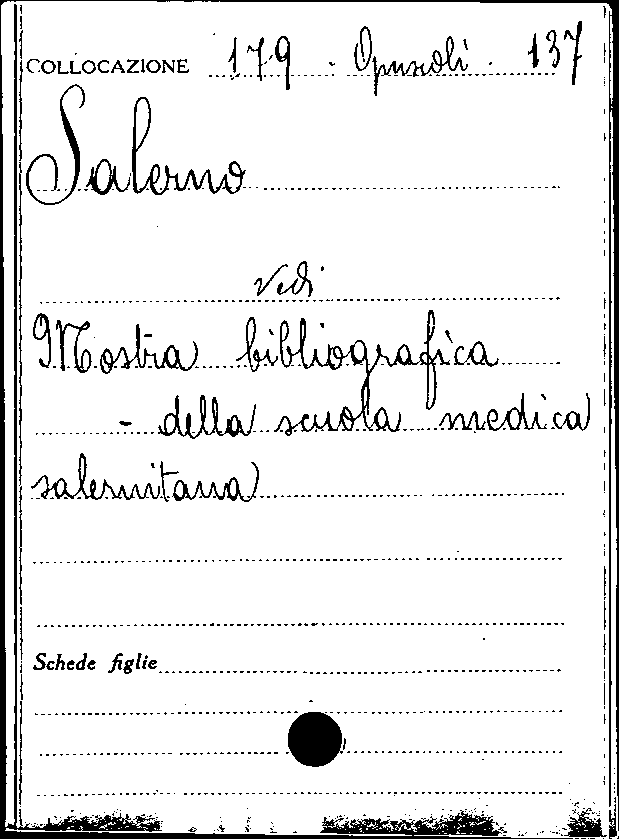 COLLOCAZIONE 179 - Opuscoli - 137
Salerno
Vedi
Mostra bibliografica
- della scuola medica
salernitana
Schede figlie